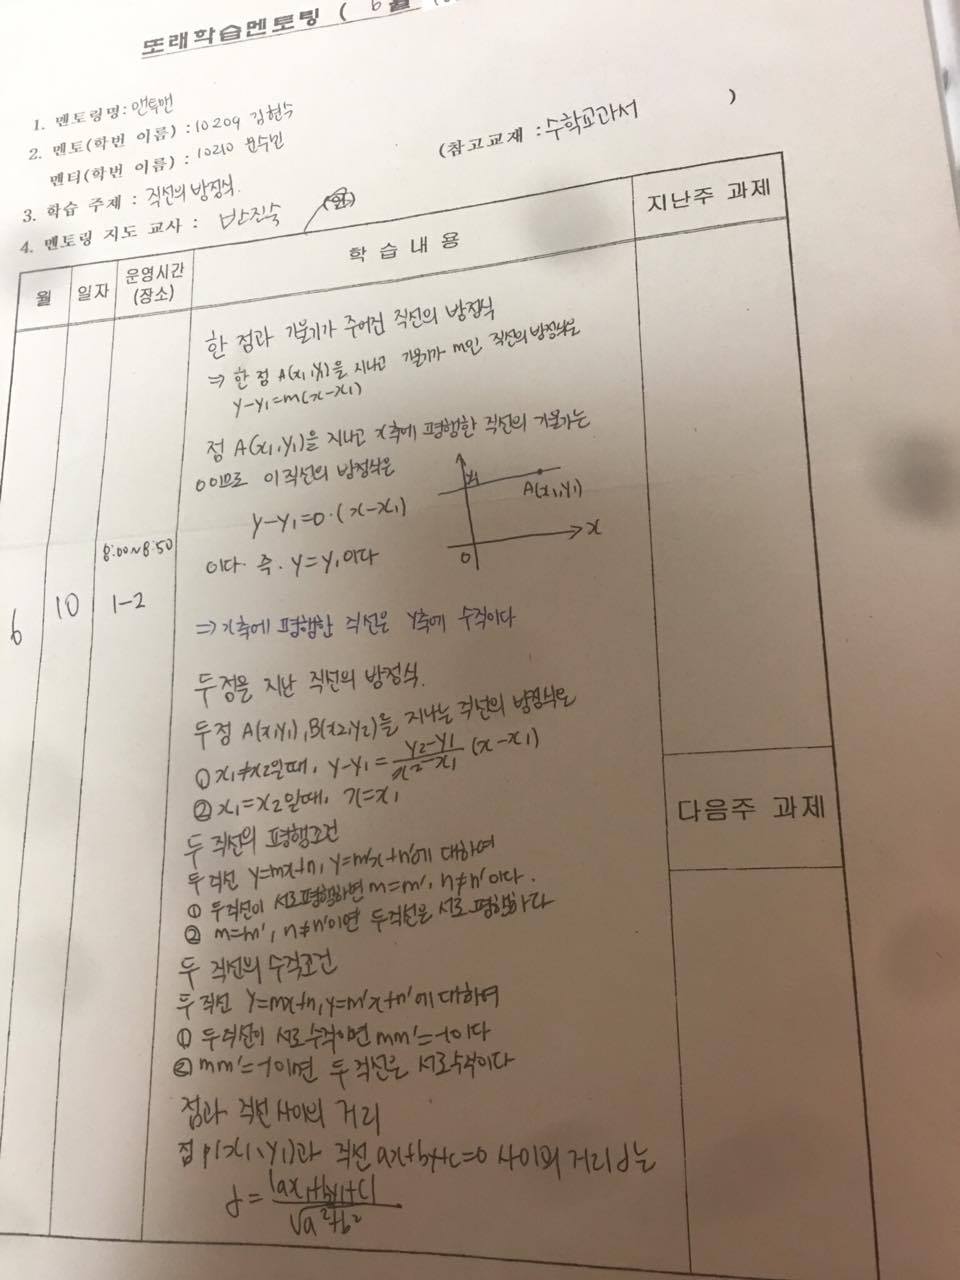 또래학습멘토링 ( 6월
1. 멘토링명: 맨투맨
2. 멘토(학번 이름) : 10209 김현수
멘티(학번 이름) : 10210 문수민
(참고교재 : 수학교과서 )
3. 학습 주제 : 직선의 방정식.
4. 멘토링 지도 교사 : 반진숙 (인)
월 일자 운영시간 (장소) 학 습 내 용 지난주 과제
한 점과 기울기가 주어진 직선의 방정식
⇒ 한 점 A(x₁,y₁)을 지나고 기울기가 m인 직선의 방정식은
y-y₁=m(x-x₁)
점 A(x₁,y₁)을 지나고 x축에 평행한 직선의 기울기는
0이므로 이 직선의 방정식은
y-y₁=0·(x-x₁)
이다. 즉. y=y₁이다
y₁
A(x₁,y₁)
x
0
6 10 8:00~8:50
1-2
⇒ x축에 평행한 직선은 y축에 수직이다
두점을 지난 직선의 방정식.
두점 A(x₁y₁), B(x₂,y₂)를 지나는 직선의 방정식은
① x₁≠x₂일때, y-y₁=(y₂-y₁)/(x₂-x₁) (x-x₁)
② x₁=x₂일때, x=x₁
다음주 과제
두 직선의 평행조건
두직선 y=mx+n, y=m'x+n'에 대하여
① 두직선이 서로평행하면 m=m', n≠n'이다.
② m=m', n≠n'이면 두직선은 서로 평행하다
두 직선의 수직조건
두 직선 y=mx+n, y=m'x+n'에 대하여
① 두직선이 서로수직이면 mm'=-1이다
② mm'=-1이면 두 직선은 서로수직이다
점과 직선 사이의 거리
점 P(x₁, y₁)과 직선 ax+by+c=0 사이의 거리 d는
d=|ax₁+by₁+c|/√a²+b²